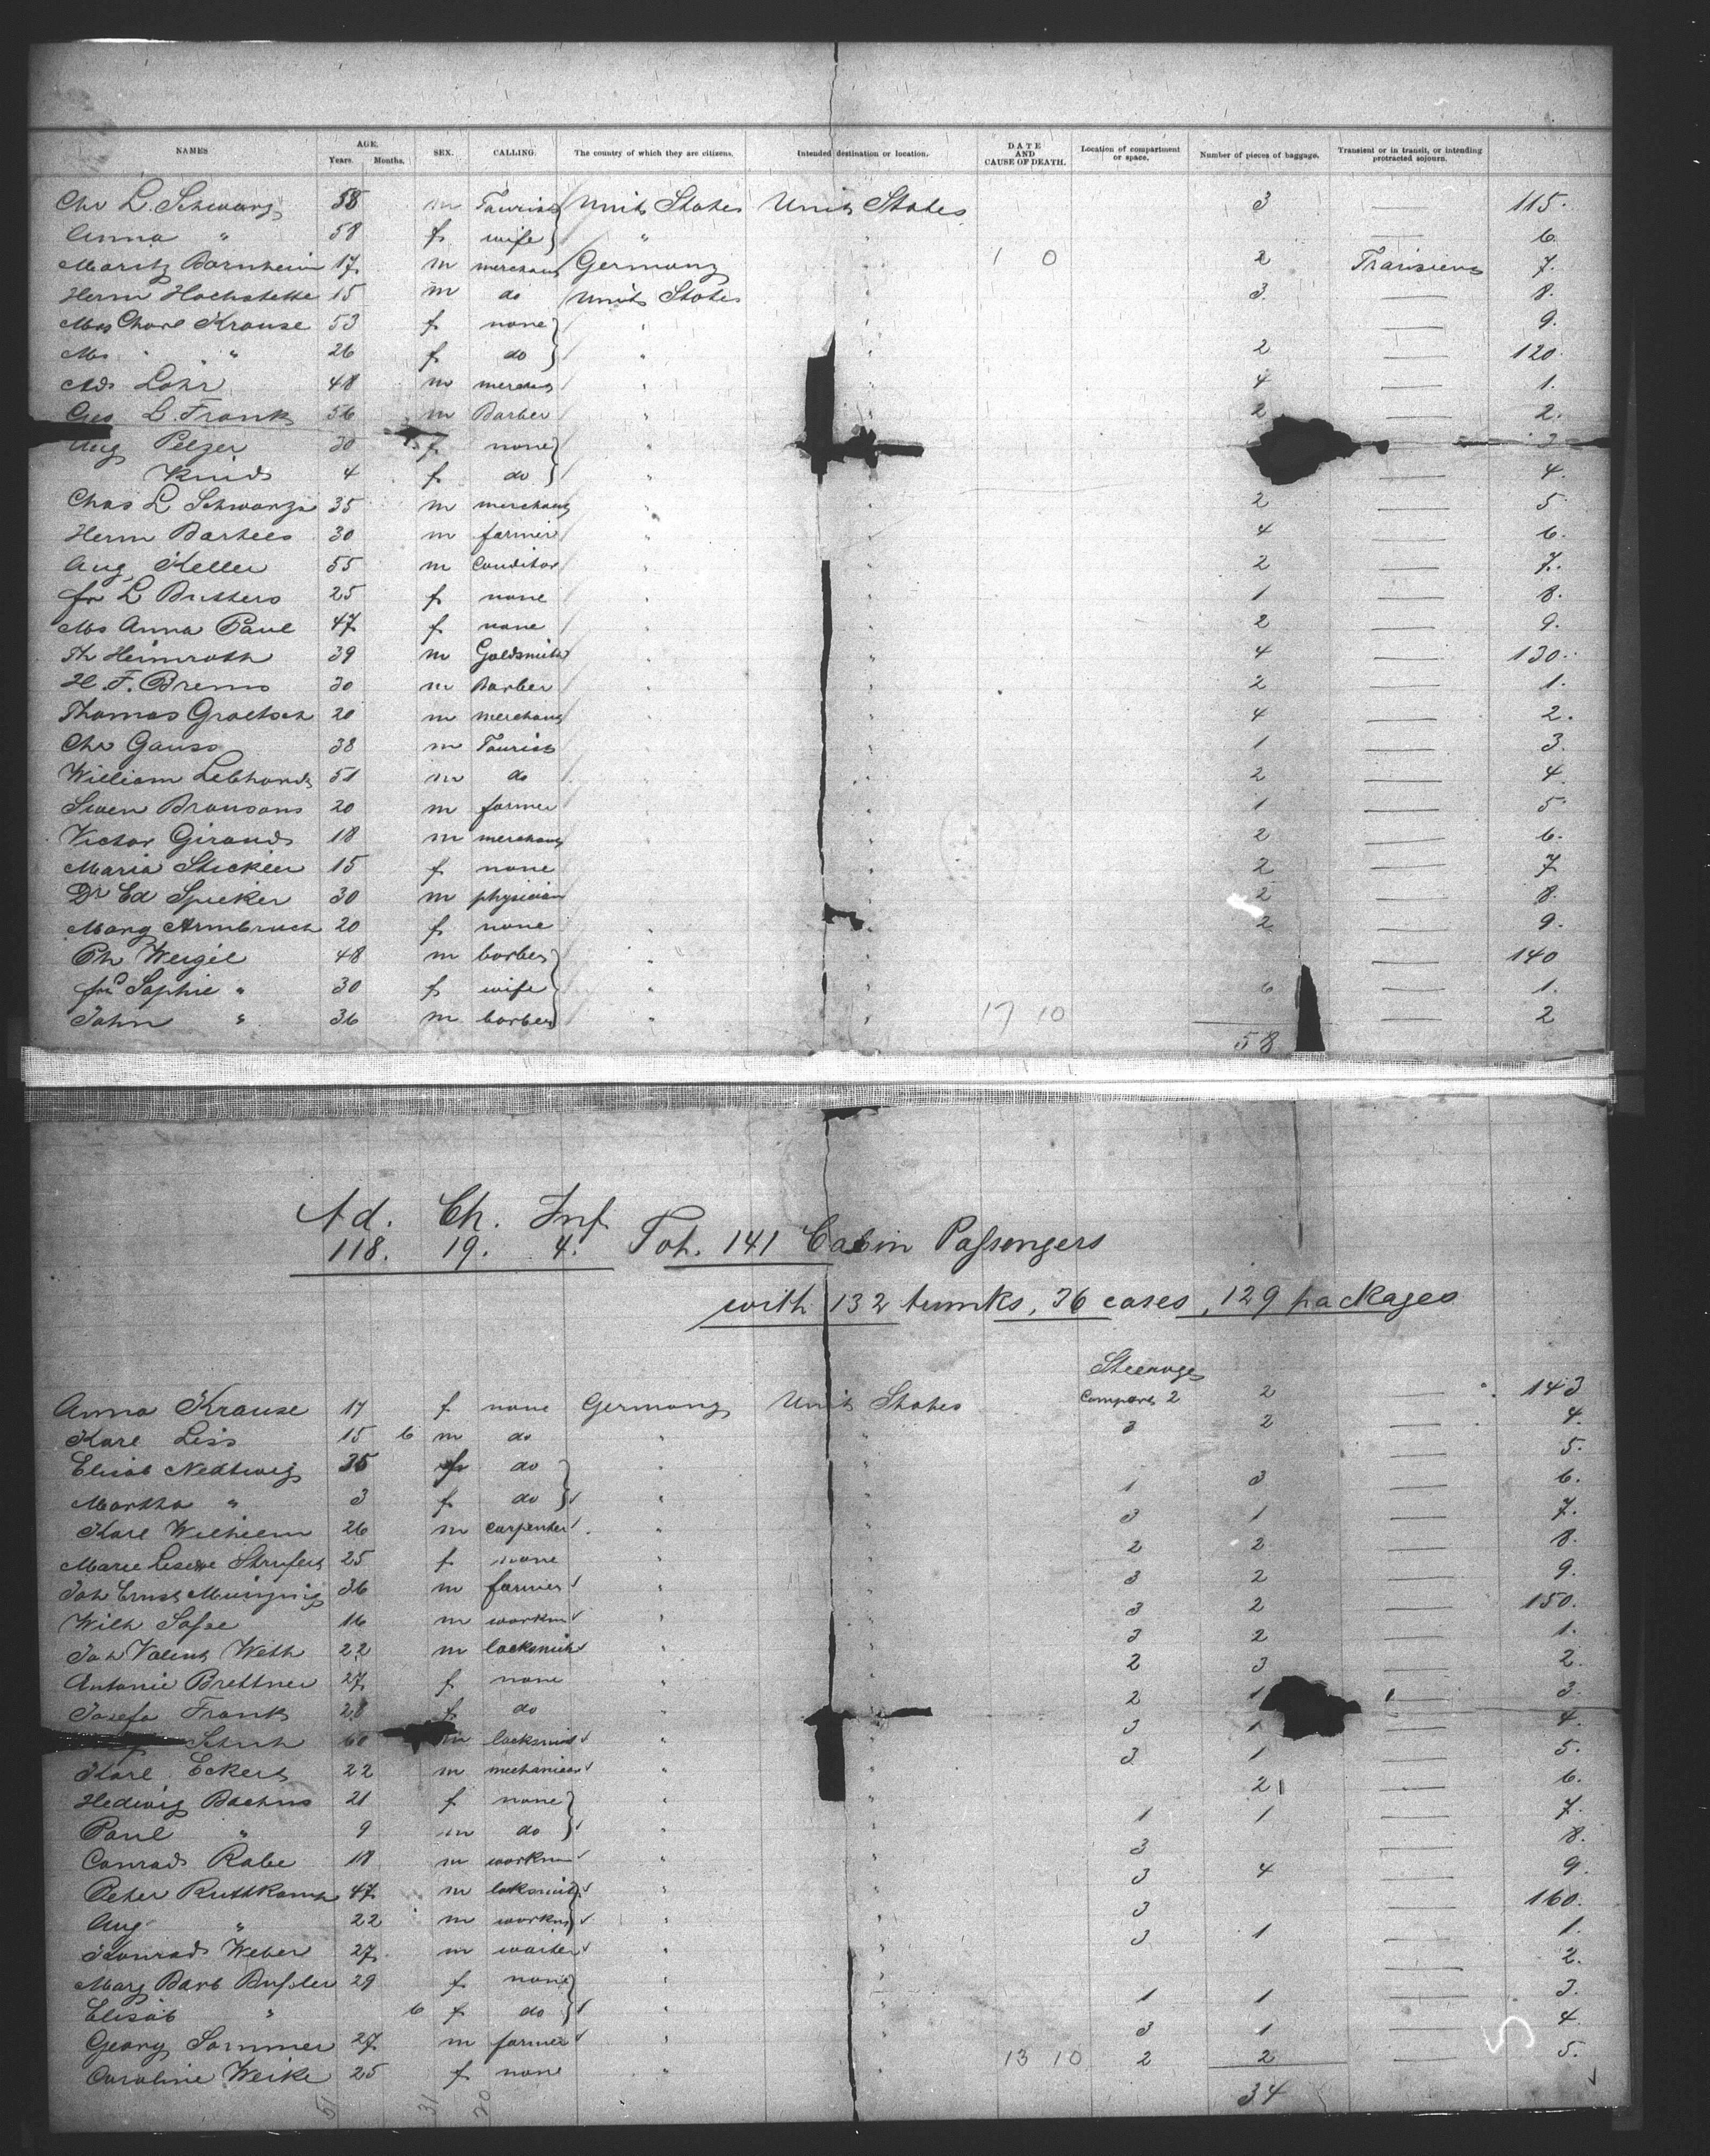 NAMES AGE. Years. Months. SEX. CALLING. The country of which they are citizens. Intended destination or location. DATE AND CAUSE OF DEATH. Location of compartment or space. Number of pieces of baggage. Transient or in transit, or intending protracted sojourn.
Chr L. Schwarz 58 m Tourist Unit States Unit States 3 — 115.
Anna " 58 f wife " " — 6.
Moritz Bornheim 17 m merchant Germany " 1 0 2 Transient 7.
Herm Hochstette 15 m do Unit States " 3 — 8.
Mrs Charl Krause 53 f none " " — 9.
Ms " " 26 f do " " 2 — 120.
Ad. Löhr 48 m merchant " " 4 — 1.
Geo L Frank 56 m Barber " " 2 — 2.
Aug Pelzer 30 f none " 3
Kind 4 f do " — 4.
Chas L Schwarz 35 m merchant " " 2 — 5
Herm Bartels 30 m farmer " " 4 — 6.
Aug. Keller 55 m Conditor " " 2 — 7.
fr L Butters 25 f none " " 1 — 8.
Ms Anna Paul 47 f none " " 2 — 9.
Th Heimroth 39 m Goldsmith " " 4 — 130.
H. F. Brems 30 m Barber " " 2 — 1.
Thomas Groetsch 20 m merchant " " 4 — 2.
Chr Gauss 38 m Tourist " 1 — 3.
William Lebhardt 51 m do " " 2 — 4.
Swen Bronsons 20 m farmer " 1 — 5.
Victor Giraud 18 m merchant " 2 — 6.
Maria Sticker 15 f none " 2 — 7
Dr Ed Spieker 30 m physician " 2 — 8.
Mary Armbruch 20 f none " " 2 — 9.
Ph Weigel 48 m barber " " — 140
fr Sophie " 30 f wife " " 6 — 1.
John " 36 m barber " " 17 10 — 2
58
Ad. Ch. Inf.
118. 19. 4. Tot. 141 Cabin Passengers
with 132 trunks, 36 cases, 129 packages
Steerage
Anna Krause 17 f none Germany Unit States Compart 2 2 — 143
Karl Liss 15 6 m do " " 3 2 — 4.
Elisab Nedtwig 35 f do " " 5.
Martha " 3 f do " " 1 3 — 6.
Karl Wilhelm 26 m carpenter " " 3 1 — 7.
Marie Lisette 25 f none " " 2 2 — 8.
Joh Ernst 36 m farmer " " 3 2 — 9.
Wilh 16 m workm " " 3 2 — 150.
Joh Valent Weth 22 m locksmith " " 3 2 — 1.
Antonie Brettner 27 f none " " 2 3 — 2.
Josefa Frank 28 f do " 2 1 — 3.
Schuh 60 m locksmith " 3 1 — 4.
Karl Eckert 22 m mechanican " " 3 1 — 5.
Hedwig Bachus 21 f none " " 2 — 6.
Paul " 9 m do " " 1 1 — 7.
Conrad Rabe 18 m workm " " 3 — 8.
Peter Ruthkamp 47 m loksmith " " 3 4 — 9.
Aug " 22 m workm " " 3 — 160.
Konrad Weber 27 m waiter " " 3 1 — 1.
Marg Barb Bußler 29 f none " " — 2.
Elisab " 6 f do " " 1 1 — 3.
Georg Sommer 27 m farmer " " 3 1 — 4.
Caroline Weike 25 f none " " 13 10 2 2 — 5.
51 31 20 34